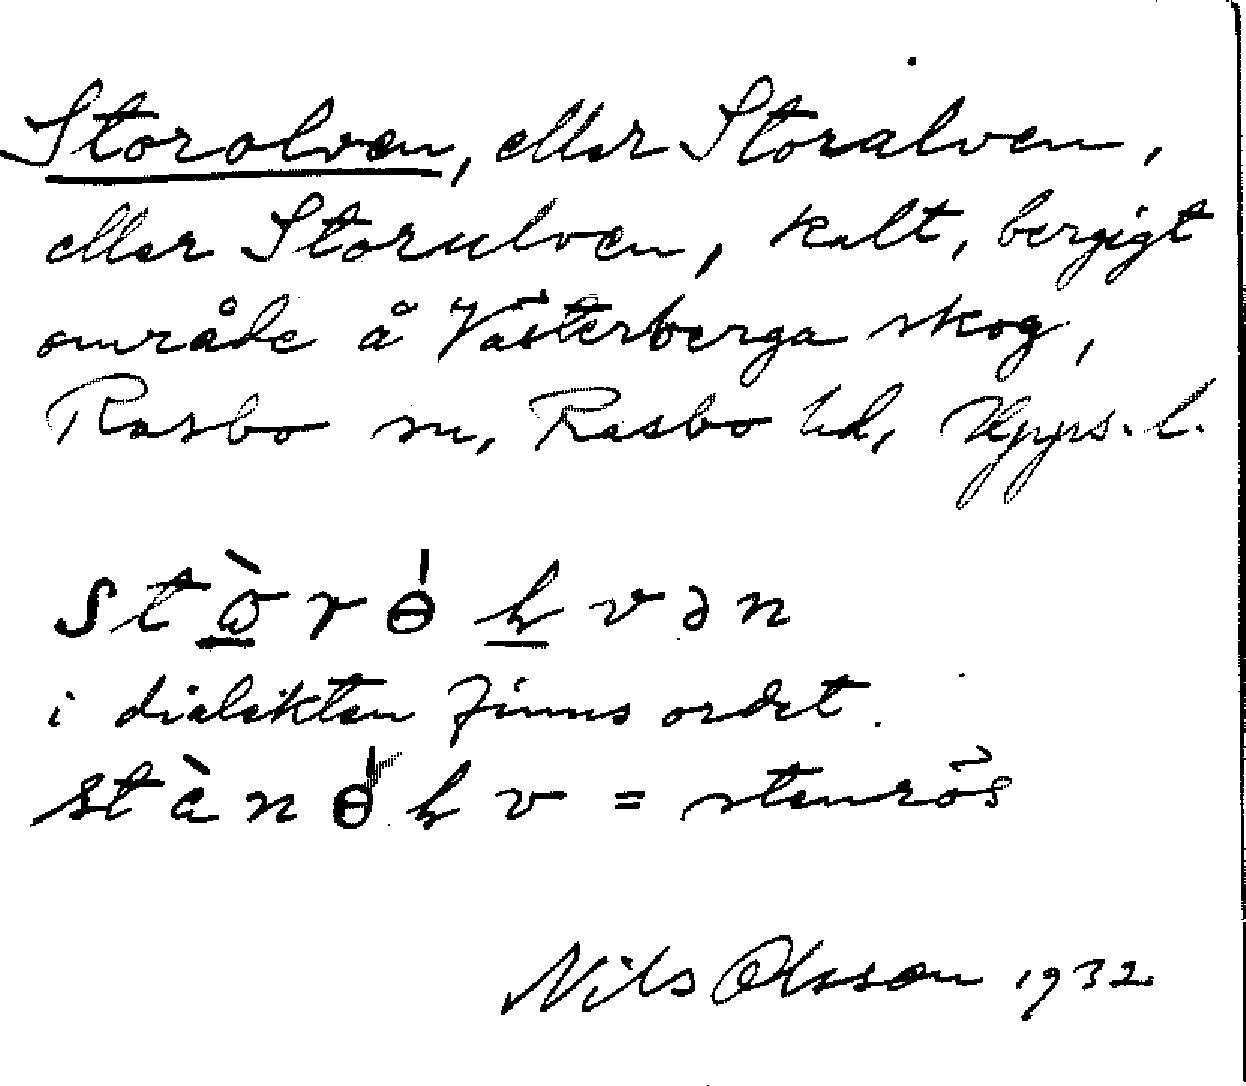 Storolven, eller Storalven,
eller Storulven, kalt, bergigt
område å Västerberga skog,
Rasbo sn, Rasbo hd, Upps. l.
i dialekten finns ordet.
= stenrös
Nils Olsson 1932.